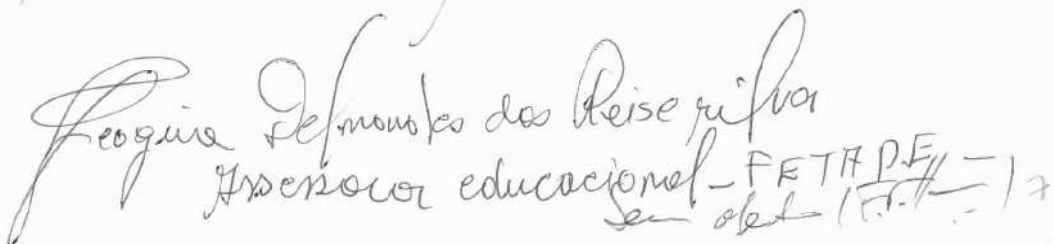 Georgina Delmondes dos Reis e Silva
Assessora educacional - FETAPE